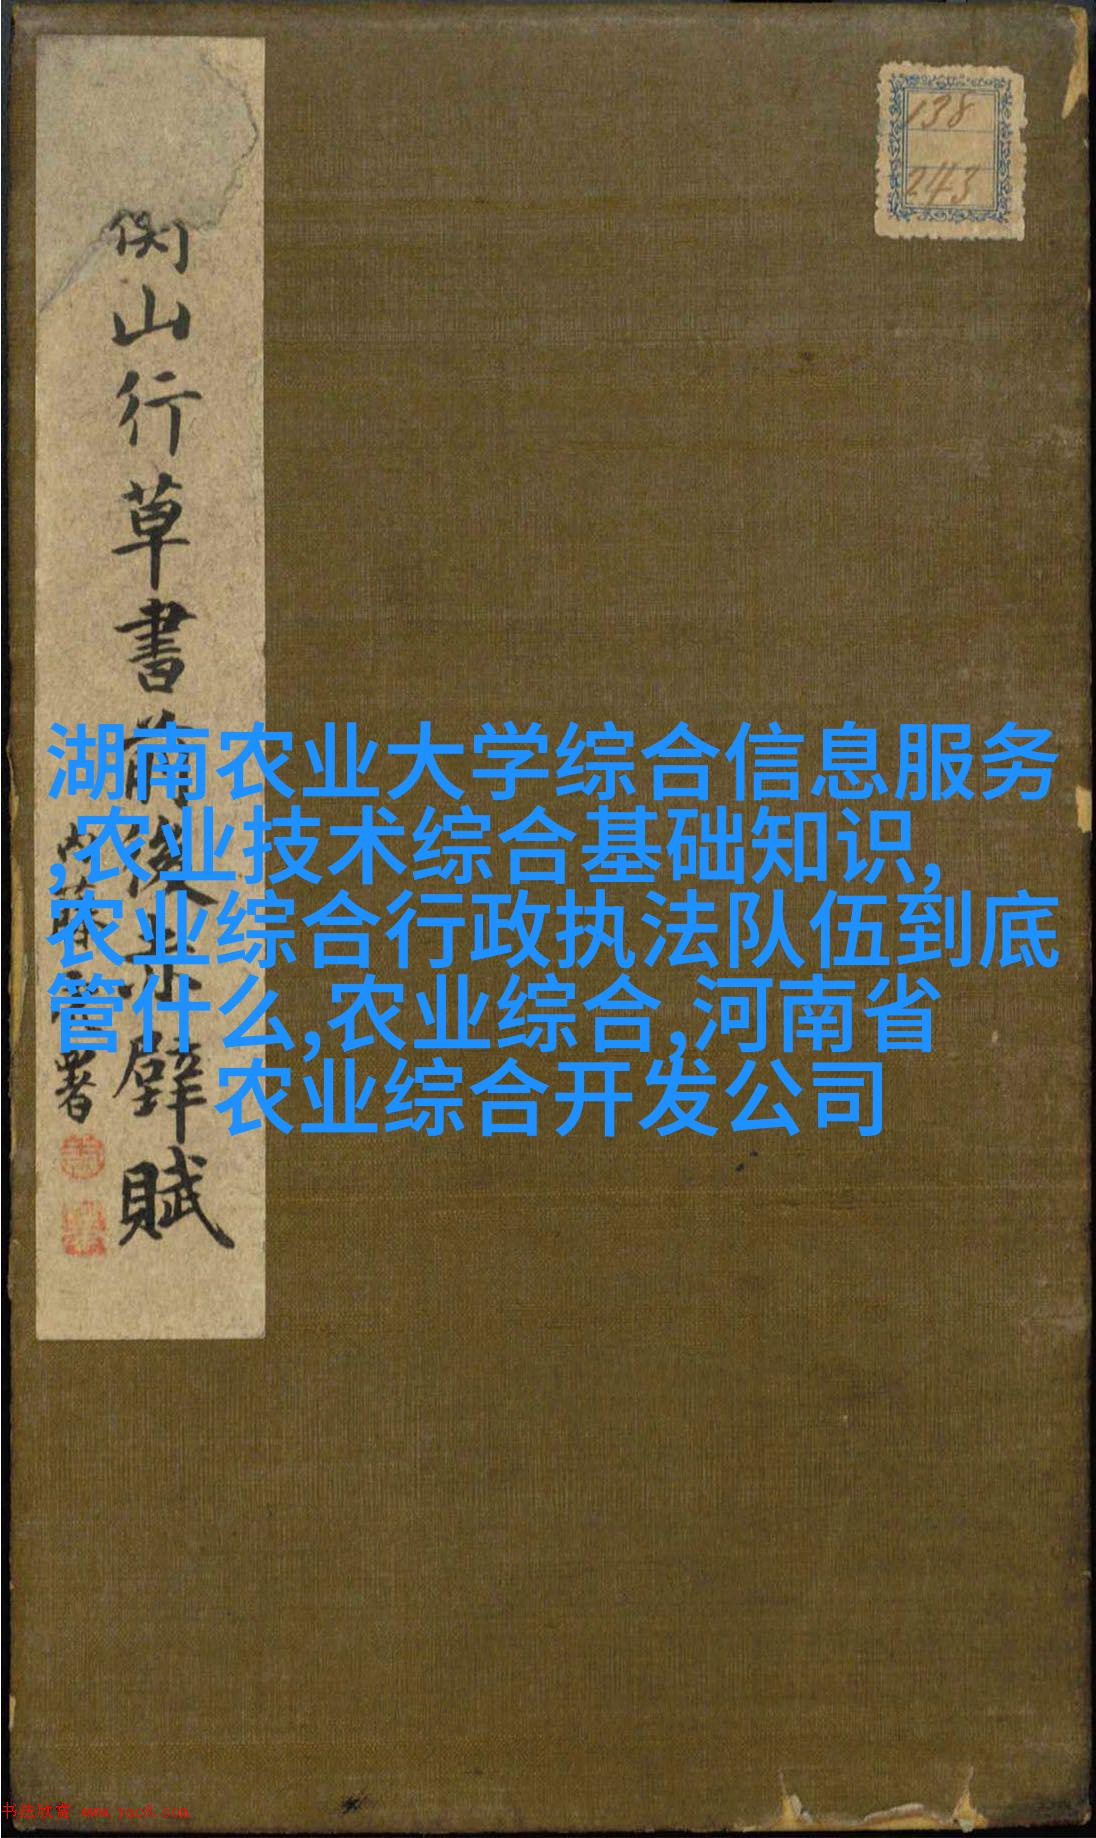 衡山行草書前後赤壁賦
内藤虎署
138
243
湖南农业大学综合信息服务
,农业技术综合基础知识,
农业综合行政执法队伍到底
管什么,农业综合,河南省
农业综合开发公司
书法欣赏 www.yac8.com